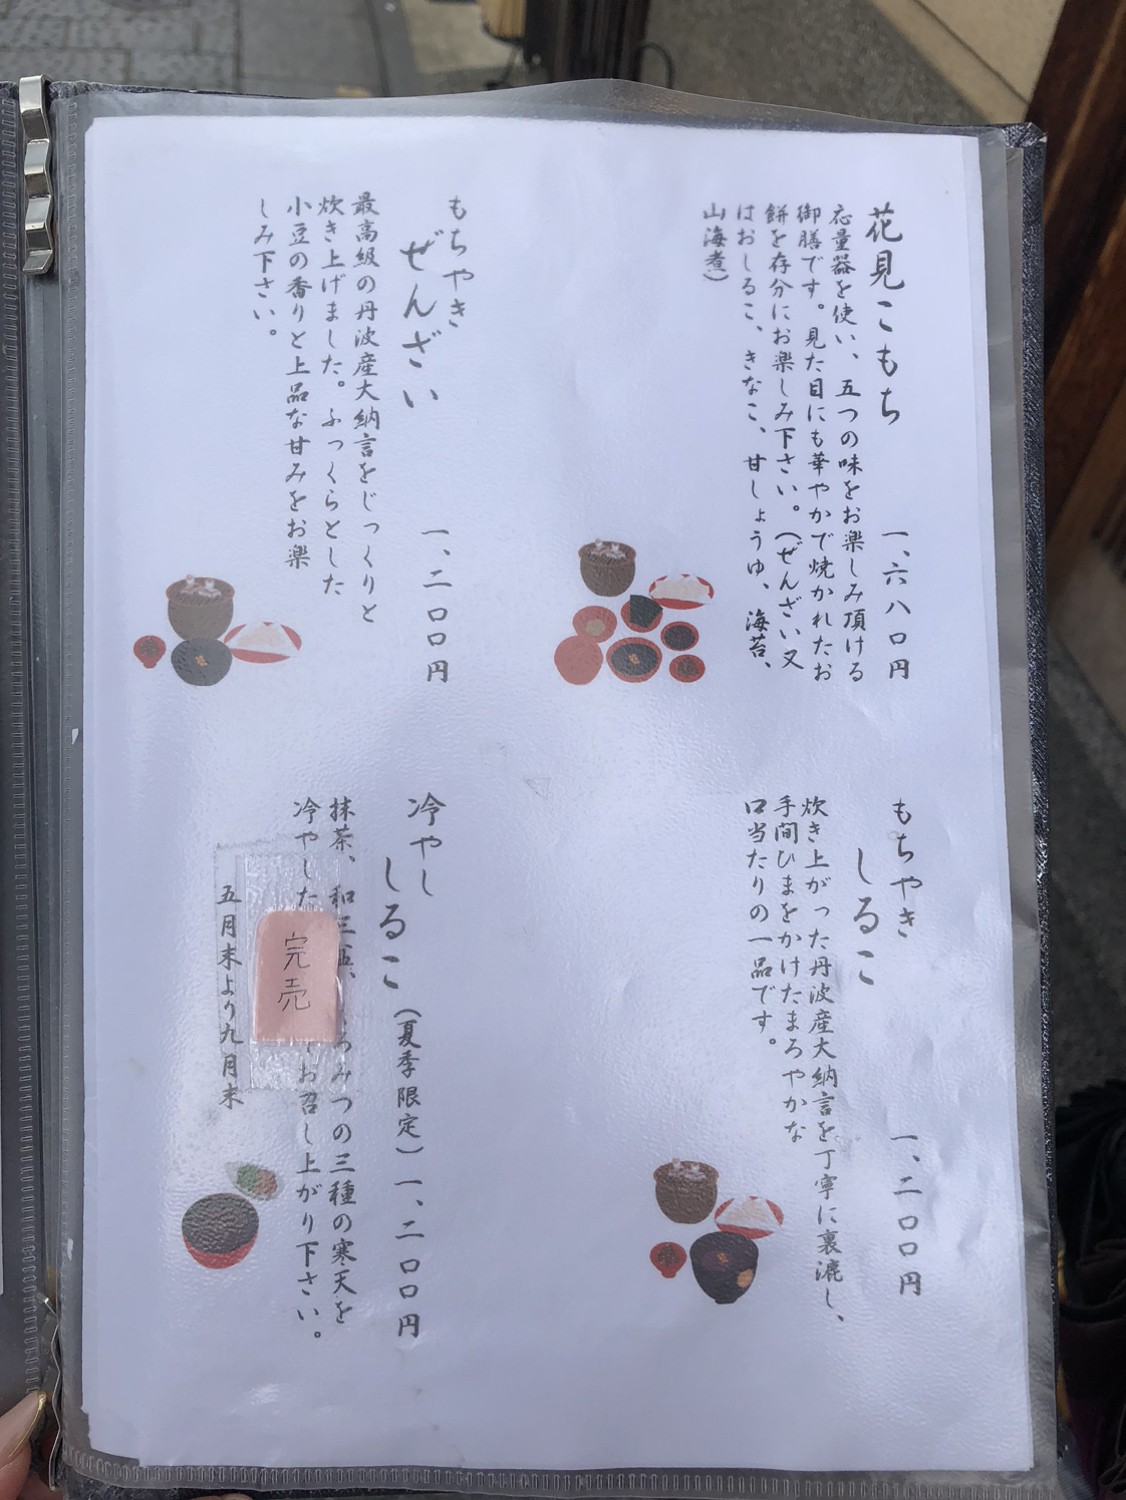 花見こもち
応量器を使い、五つの味をお楽しみ頂ける
御膳です。見た目にも華やかで焼かれたお
餅を存分にお楽しみ下さい。(ぜんざい又
はおしるこ、きなこ、甘しょうゆ、海苔、
山海煮)
一、六八〇円
もちやき
ぜんざい
最高級の丹波産大納言をじっくりと
炊き上げました。ふっくらとした
小豆の香りと上品な甘みをお楽
しみ下さい。
一、二〇〇円
もちやき
しるこ
炊き上がった丹波産大納言を丁寧に裏漉し、
手間ひまをかけたまろやかな
口当たりの一品です。
一、二〇〇円
冷やし
しるこ(夏季限定)一、二〇〇円
抹茶、和三盆、みつの三種の寒天を
冷やしたお召し上がり下さい。
五月末より九月末
完売